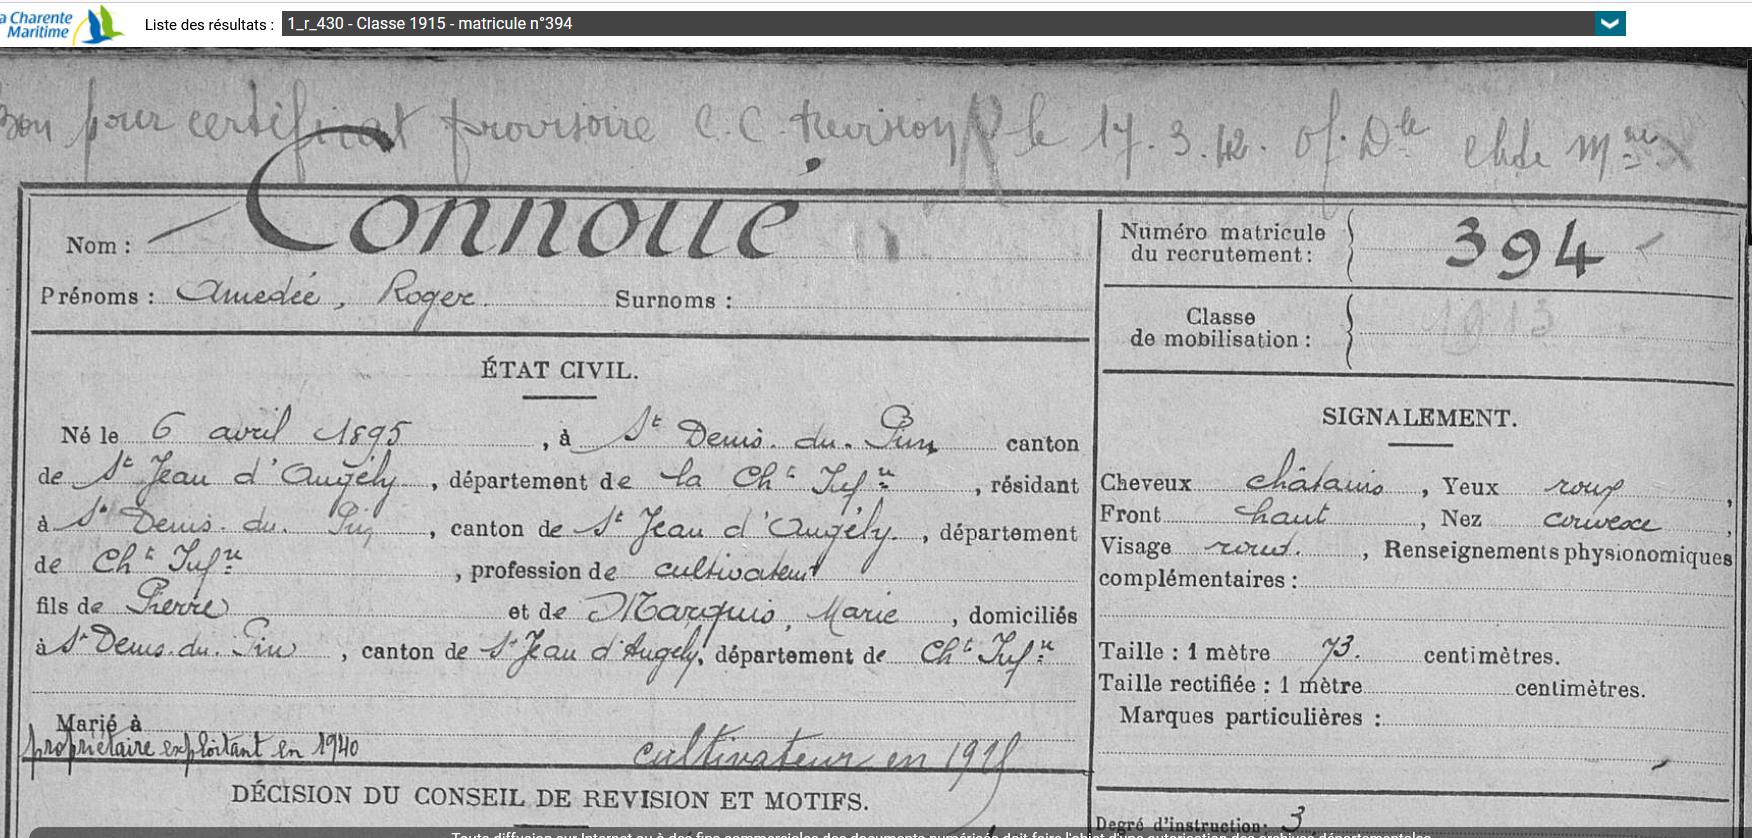 a Charente
Maritime
Liste des résultats : 1_r_430 - Classe 1915 - matricule n°394
Bon pour certificat provisoire C.C. le 17.3.42.
Nom : Connollé
Prénoms : Amédée, Roger. Surnoms :
Numéro matricule
du recrutement : 394
Classe
de mobilisation : 1913
ÉTAT CIVIL.
Né le 6 avril 1895, à St Denis. du. Pin canton
de St Jean d'Angély, département de la Chte Infre, résidant
à St Denis. du. Pin, canton de St Jean d'Angély., département
de Chte Infre, profession de cultivateur
fils de Pierre et de Marquis, Marie, domiciliés
à St Denis. du. Pin, canton de St Jean d'Angély, département de Chte Infre
Marié à
propriétaire exploitant en 1940
cultivateur en
DÉCISION DU CONSEIL DE REVISION ET MOTIFS.
SIGNALEMENT.
Cheveux châtains, Yeux roux,
Front haut, Nez convexe,
Visage rond., Renseignements physionomiques
complémentaires :
Taille : 1 mètre 73. centimètres.
Taille rectifiée : 1 mètre centimètres.
Marques particulières :
Degré d'instruction: 3
Toute diffusion sur Internet ou à des fins commerciales des documents numérisés doit faire l'objet d'une autorisation des archives départementales